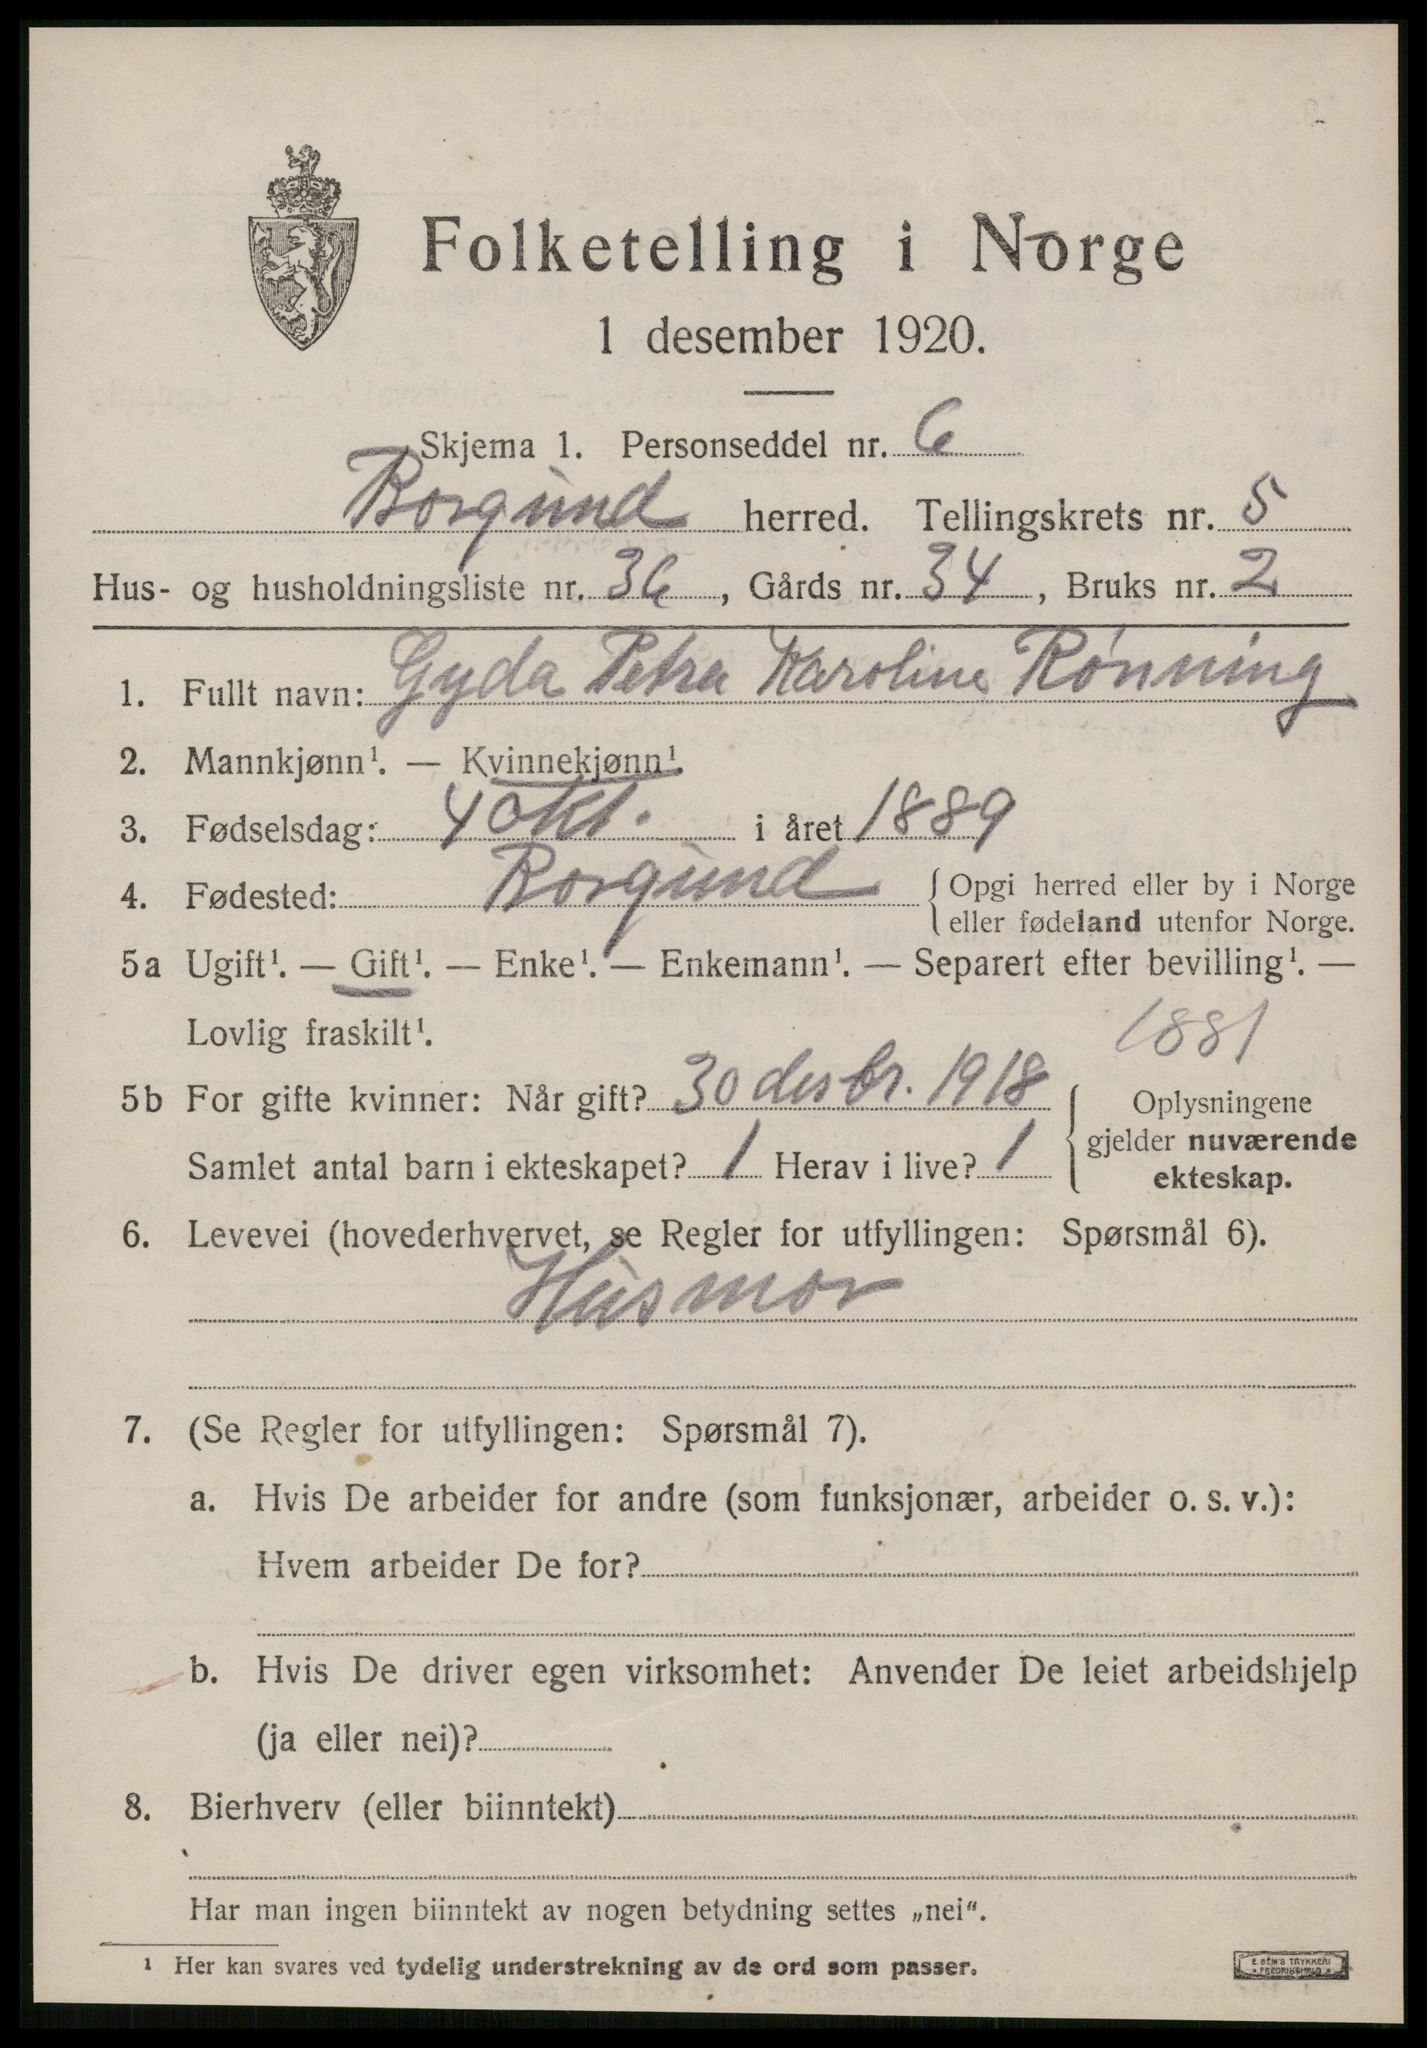 Folketelling i Norge
1 desember 1920.
Skjema 1. Personseddel nr. 6
Borgund herred. Tellingskrets nr. 5
Hus- og husholdningsliste nr. 36, Gårds nr. 34, Bruks nr. 2
1. Fullt navn: Gyda Petra Karoline Rønning
2. Mannkjønn¹. — Kvinnekjønn¹.
3. Fødselsdag: 4 okt. i året 1889
4. Fødested: Borgund { Opgi herred eller by i Norge
eller fødeland utenfor Norge.
5a Ugift¹. — Gift¹. — Enke¹. — Enkemann¹. — Separert efter bevilling¹. —
Lovlig fraskilt¹. 1881
5b For gifte kvinner: Når gift? 30 desbr. 1918 { Oplysningene
gjelder nuværende
Samlet antal barn i ekteskapet? 1 Herav i live? 1
ekteskap.
6. Levevei (hovederhvervet, se Regler for utfyllingen: Spørsmål 6).
Husmor
7. (Se Regler for utfyllingen: Spørsmål 7).
a. Hvis De arbeider for andre (som funksjonær, arbeider o. s. v.):
Hvem arbeider De for?
b. Hvis De driver egen virksomhet: Anvender De leiet arbeidshjelp
(ja eller nei)?
8. Bierhverv (eller biinntekt)
Har man ingen biinntekt av nogen betydning settes „nei“.
¹ Her kan svares ved tydelig understrekning av de ord som passer.
E. SEM'S TRYKKERI
FREDRIKSHALD